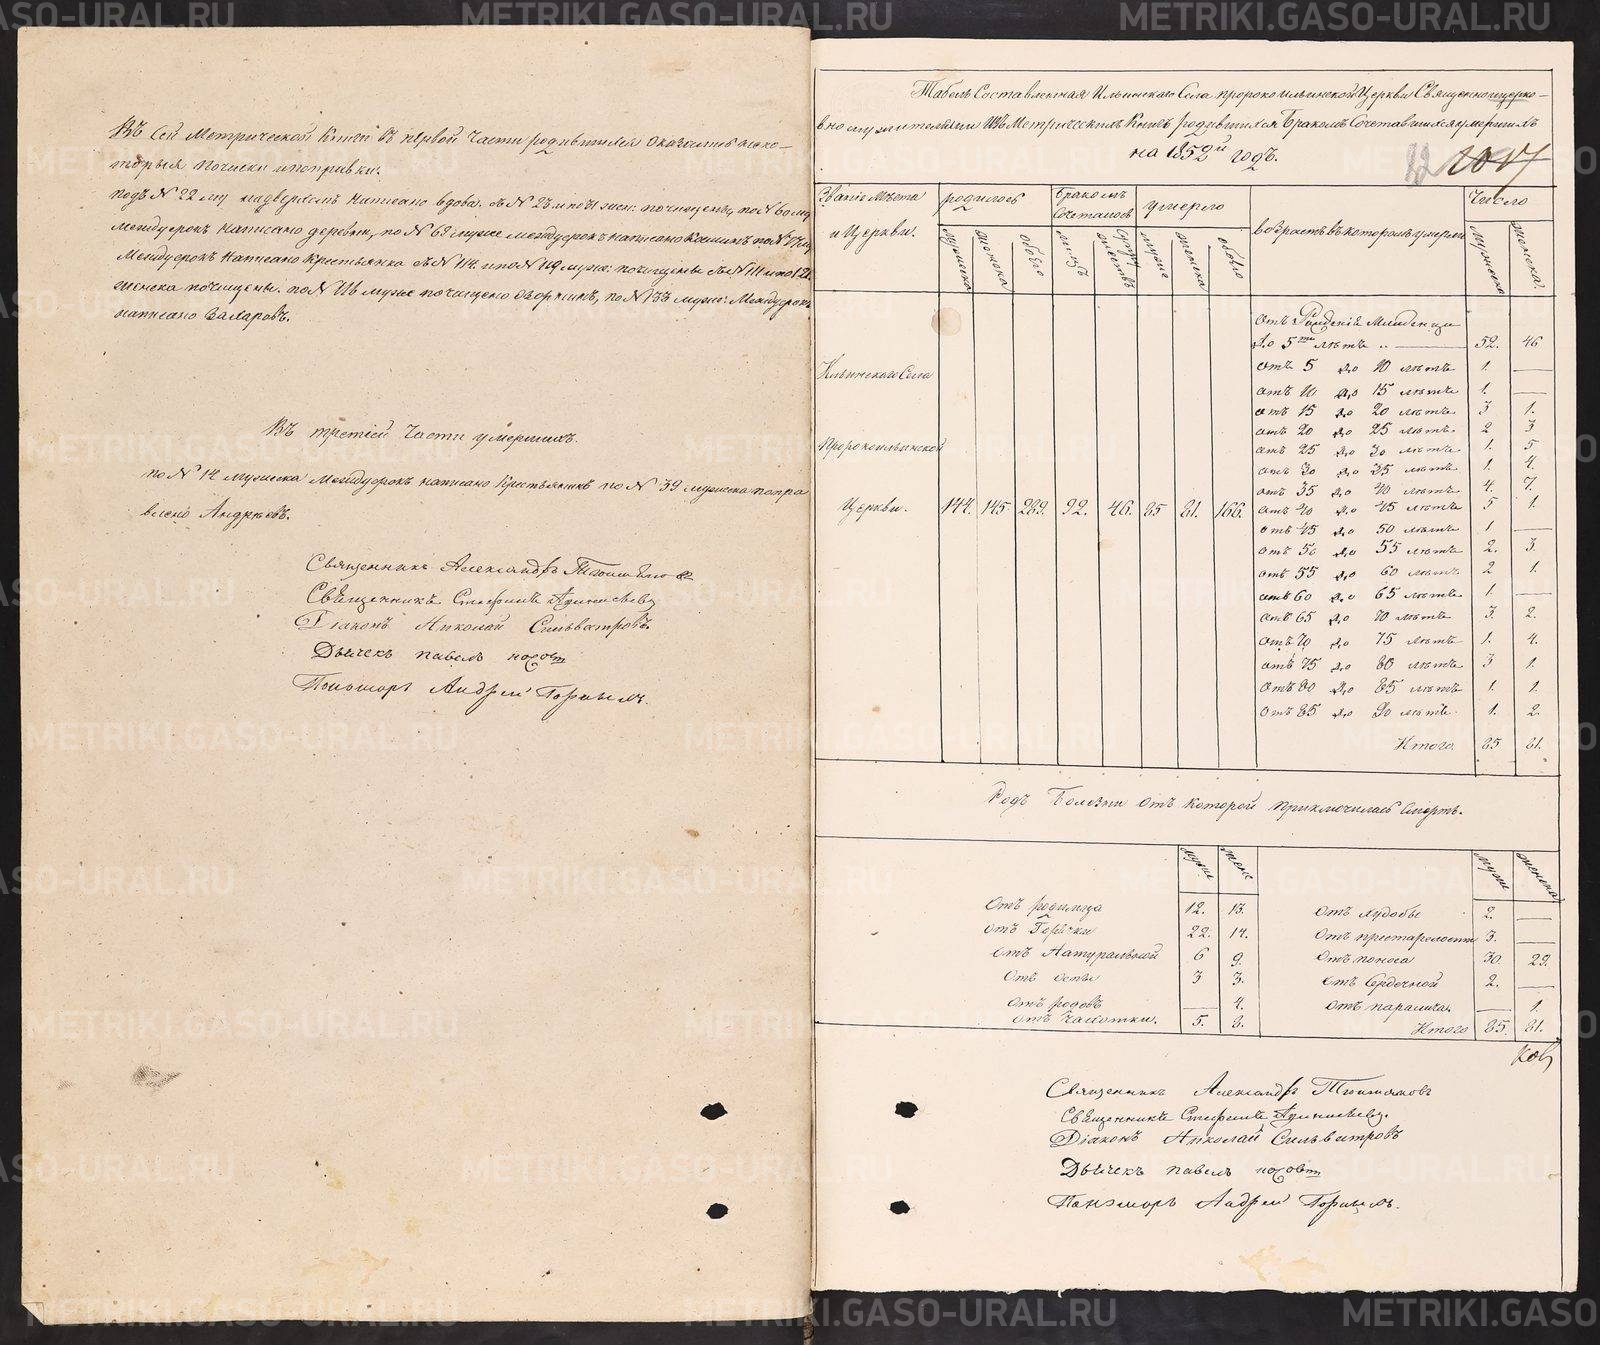 Въ Сей Метрической Книге въ первой Части родившихся оказались неко-
торыя почиски ипоправки.
подъ N 22 му надверхомъ написано вдова. въ N 23 и почищено, по N 60 му
Междустрокъ написано деревни, по N 69 мужс междустрокъ написано по N
Междустрокъ написано Крестьянка въ N 114 и по N 119 муже: почищены въ N 111 и по 121
женска почищены. по N мужс почищено по N 133 мужс: Междустрокъ
написано Захаровъ.
Въ третией Части умершихъ.
по N 14 мужска Междустрокъ написано Крестьянинъ по N 39 мужска попра
влено Андреевъ.
Священникъ Александръ
Священникъ Стефанъ
Діаконъ Николай Сильвестровъ
Дьячекъ павелъ носовъ
Пономарь Андрей
Табель Составленная Ильинскаго Села пророкоильинской Церкви Священноцерко-
вно служителями Изъ Метрическихъ Книгъ родившихся Бракомъ Сочетавшихся умершихъ
на 1852й годъ.
1017
Званіе Места
и Церкви.
родилось
Бракомъ
Сочеталось
умерло
возрастъ въ которомъ умерли
Число
мужеска
женска
обоего
лицъ
супружествъ
мужс
женска
обоего
мужеска
женска.
Ильинскаго Села
Пророкоильинской
Церкви. 144. 145 289. 92. 46. 85 81. 166.
отъ Рождения Младенца
до 5ти летъ 52. 46
отъ 5 до 10 летъ 1. —
отъ 10 до 15 летъ 1. —
отъ 15 до 20 летъ 3 1.
отъ 20 до 25 летъ 2 3
отъ 25 до 30 летъ 1. 5
отъ 30 до 35 летъ 1. 4.
отъ 35 до 40 летъ 4. 7.
отъ 40 до 45 летъ 5 1.
отъ 45 до 50 летъ 1 —
отъ 50 до 55 летъ 2. 3.
отъ 55 до 60 летъ 2 1.
отъ 60 до 65 летъ 1. —
отъ 65 до 70 летъ 3. 2.
отъ 70 до 75 летъ 1. 4.
отъ 75 до 80 летъ 3 1.
отъ 80 до 85 летъ 1. 1.
отъ 85 до 90 летъ 1. 2.
Итого 85 81.
Родъ Болезни отъ Которой приключилась Смерть.
мужс женс мужс женска
отъ родимца 12. 13. отъ худобы 2. —
отъ Горячки 22. 14. отъ престарелости 3. —
отъ Натуральной 6 9. отъ поноса 30. 29.
отъ оспы 3 3. отъ Сердечной 2. —
отъ родовъ — 4. отъ паралича. — 1.
отъ Чахотки. 5. 8. Итого 85. 81.
Священникъ Александръ
Священникъ Стефанъ
Діаконъ Николай Сильвестровъ
Дьячекъ павелъ носовъ
Пономарь Андрей
METRIKI.GASO-URAL.RU